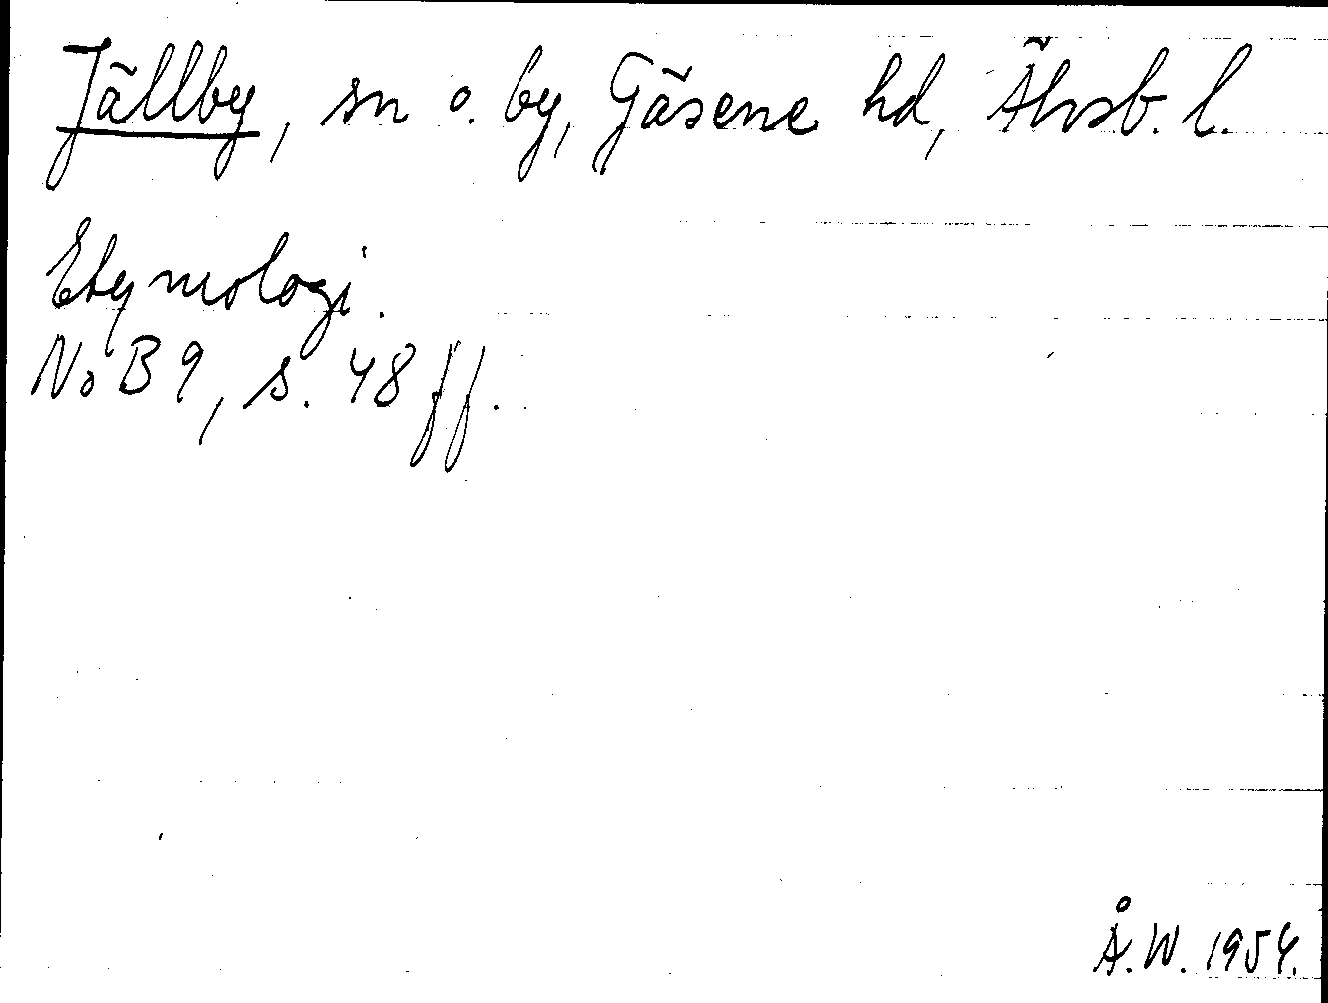 Jällby, sn o. by, Gäsene hd, Älvsb. l.
Etymologi.
NoB 9, s. 48 ff.
Å.W. 1954.